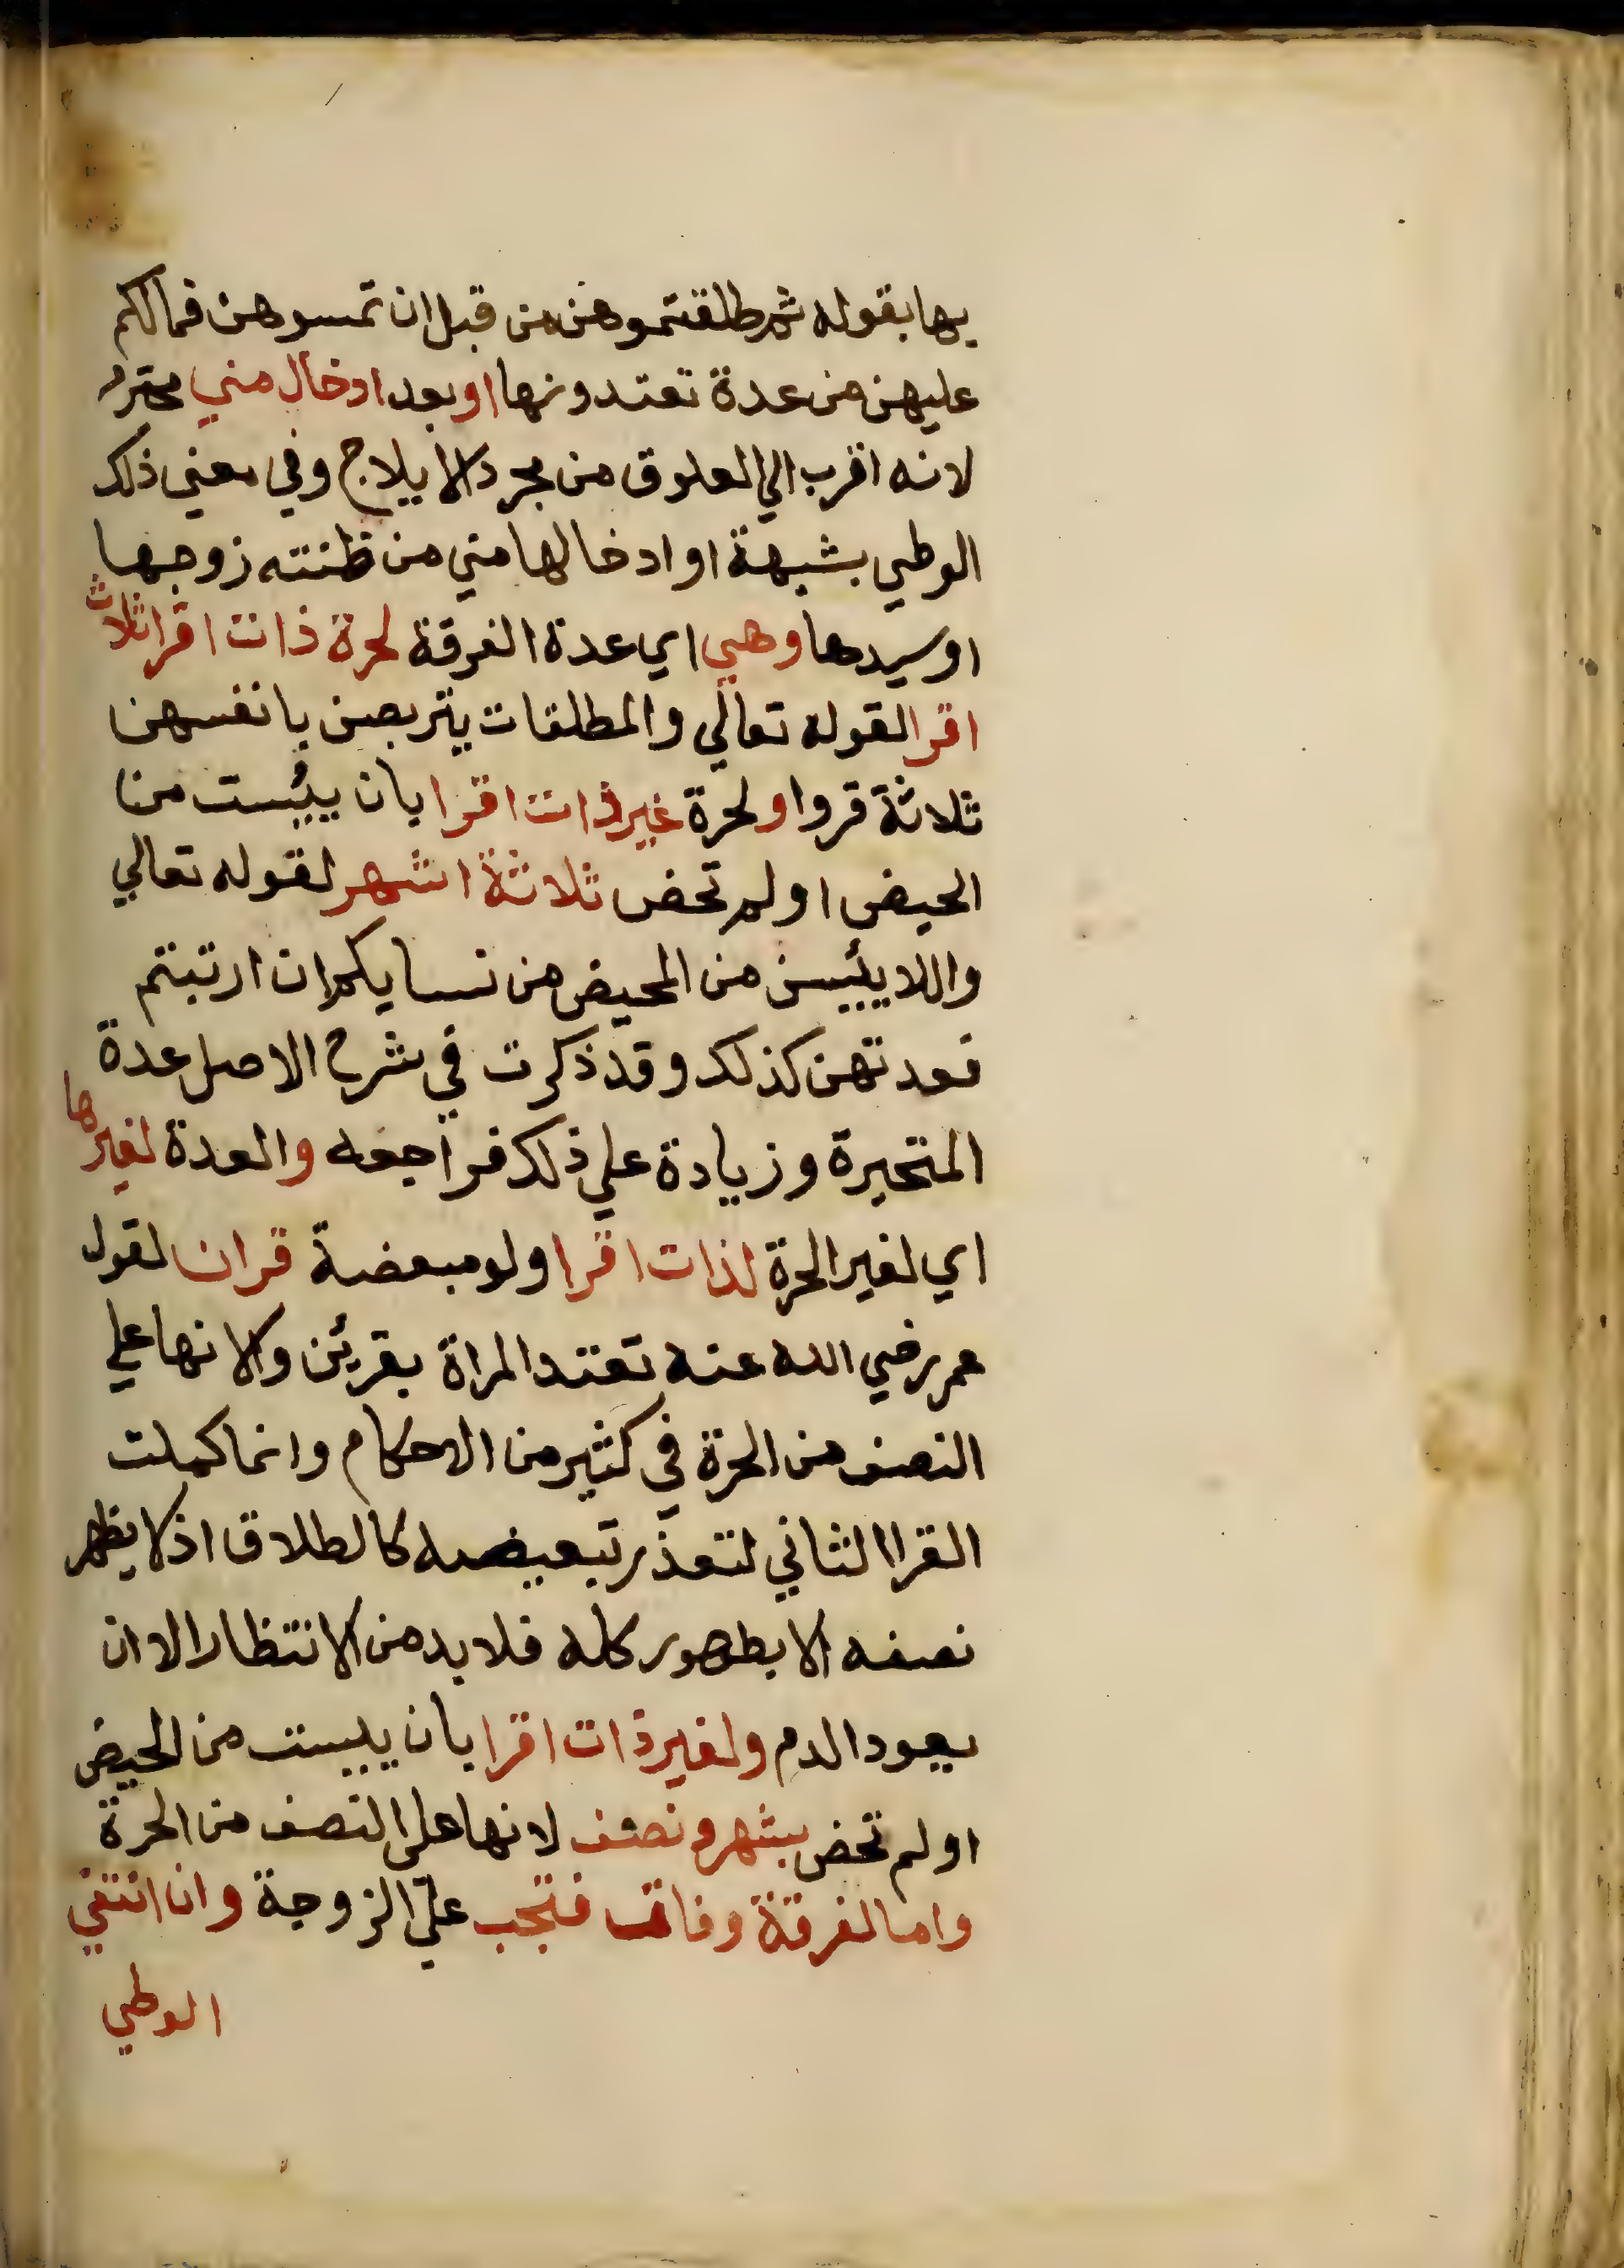 بها بقوله ثم طلقتموهن من قبل ان تمسوهن فمالكم
عليهن من عدة تعتدونها او بعد ادخال مني محترم
لانه اقرب الي العلوق من مجرد الايلاج وفي معني ذلك
الوطي بشبهة او ادخالها مني من ظنته زوجها
او سيدها وهي اي عدة الفرقة لحرة ذات اقرا ثلاث
اقرا لقوله تعالي والمطلقات يتربصن بانفسهن
ثلاثة قروا ولحرة غير ذات اقرا بان يئست من
الحيض او لم تحض ثلاثة اشهر لقوله تعالي
واللا يئيسن من المحيض من نسايكم ان ارتبتم
فعدتهن كذلك وقد ذكرت في شرح الاصل عدة
المتحيرة وزيادة علي ذلك فراجعه والعدة لغيرها
اي لغير الحرة لذات اقرا ولو مبعضة قران لقول
عمر رضي الله عنه تعتد المراة بقرئن ولانها علي
النصف من الحرة في كثير من الاحكام وانما كملت
القرا الثاني لتعذر تبعيضه كالطلاق اذ لا يظهر
نصفه الا بظهور كله فلا بد من الانتظار الا ان
يعود الدم ولغير ذات اقرا بان يبيست من الحيض
او لم تحض بشهر ونصف لانها علي النصف من الحرة
واما لفرقة وفاة فتجب علي الزوجة وان انتفي
الوطي